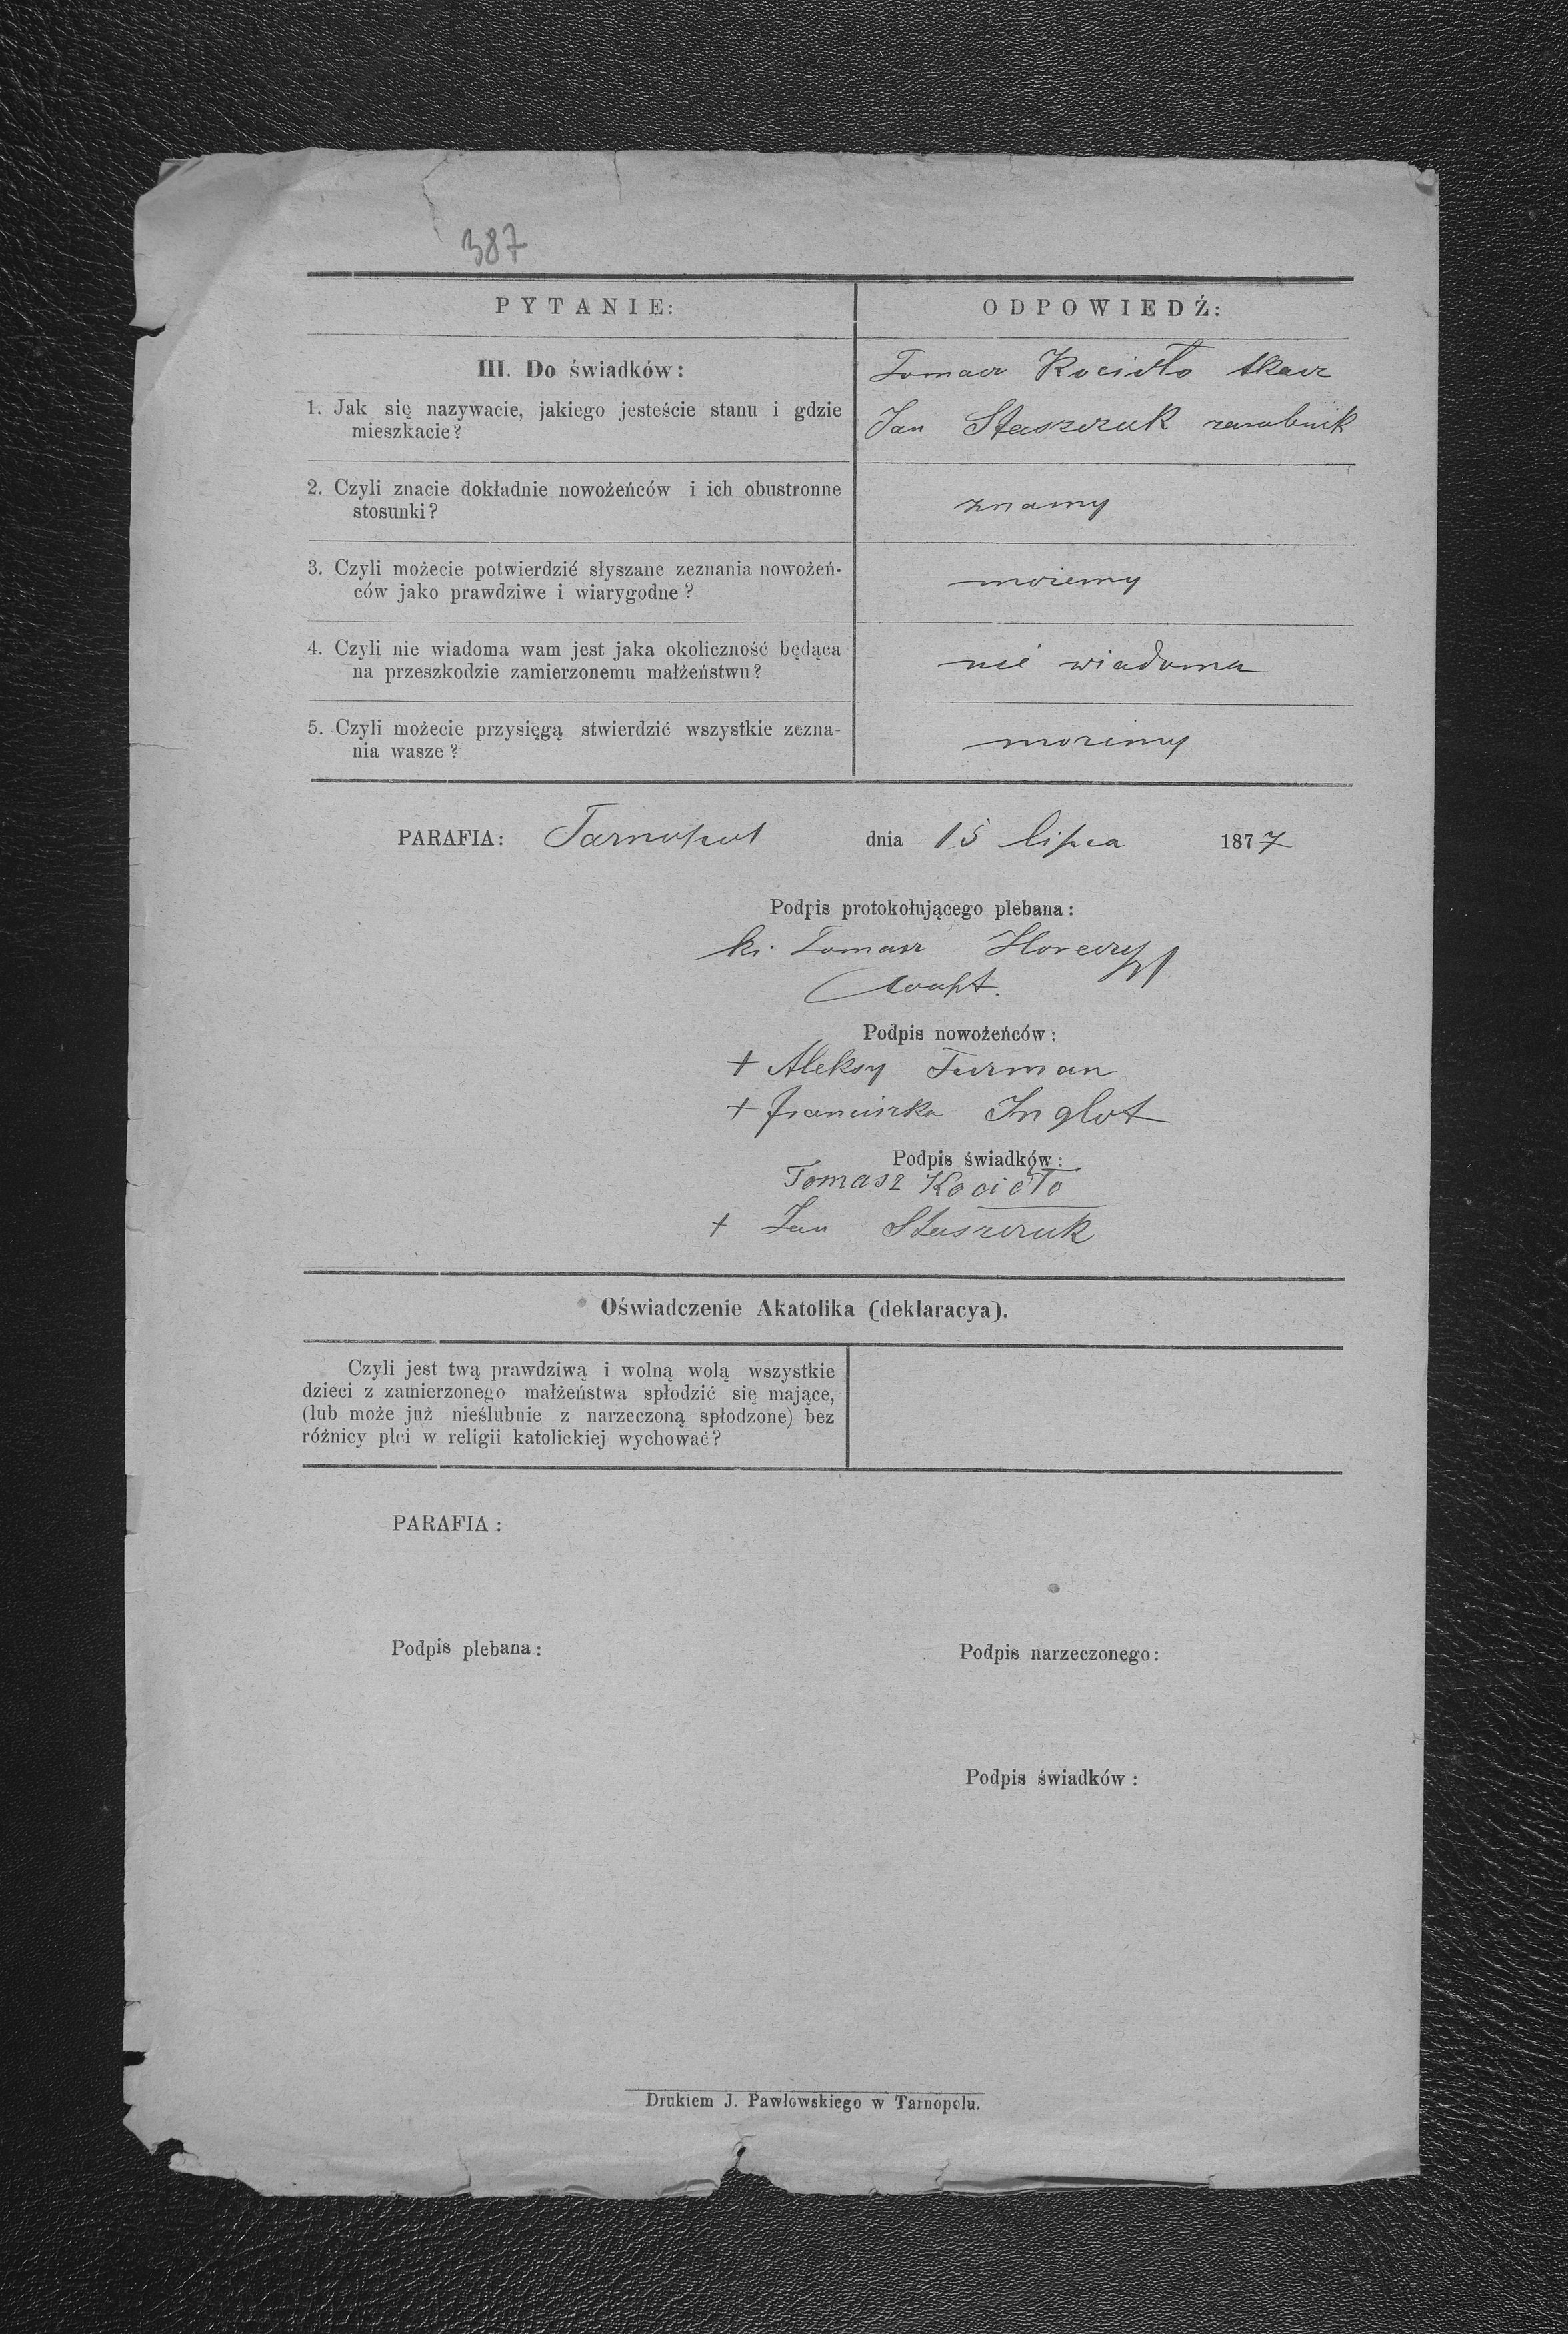 387
PYTANIE:
ODPOWIEDŹ:
III. Do świadków:
Tomasz Kocioło tkacz
1. Jak się nazywacie, jakiego jesteście stanu i gdzie
mieszkacie?
Jan Staszczuk zarobnik
2. Czyli znacie dokładnie nowożeńców i ich obustronne
stosunki?
znamy
3. Czyli możecie potwierdzić słyszane zeznania nowożeń-
ców jako prawdziwe i wiarygodne?
możemy
4. Czyli nie wiadoma wam jest jaka okoliczność będąca
na przeszkodzie zamierzonemu małżeństwu?
nie wiadoma
5. Czyli możecie przysięgą stwierdzić wszystkie zezna-
nia wasze?
możemy
PARAFIA: Tarnopol dnia 15 lipca 1877
Podpis protokołującego plebana:
ks. Tomasz
Coopt.
Podpis nowożeńców:
+ Aleksy Furman
+ Franciszka Inglot
Podpis świadków:
Tomasz Kocioło
+ Jan Staszczuk
Oświadczenie Akatolika (deklaracya).
Czyli jest twą prawdziwą i wolną wolą wszystkie
dzieci z zamierzonego małżeństwa spłodzić się mające,
(lub może już nieślubnie z narzeczoną spłodzone) bez
różnicy płci w religii katolickiej wychować?
PARAFIA:
Podpis plebana:
Podpis narzeczonego:
Podpis świadków:
Drukiem J. Pawłowskiego w Tarnopolu.